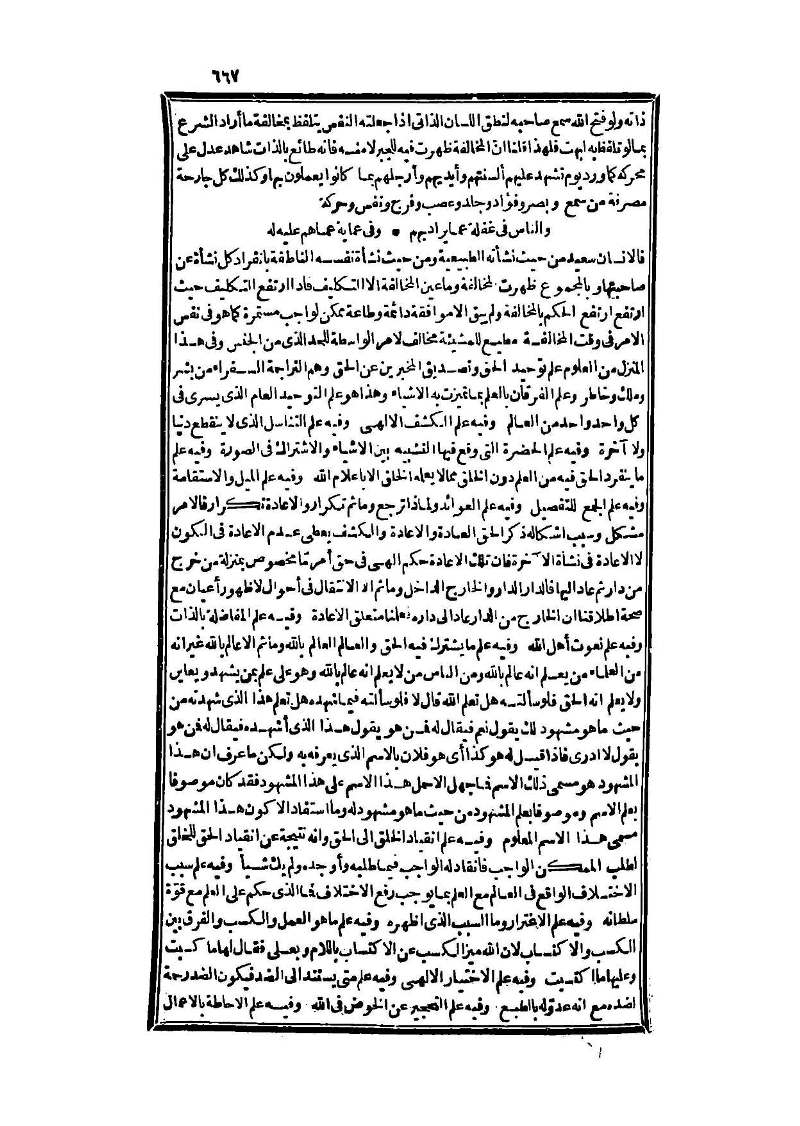 ٦٦٧
ذاته ولو فتح الله سمع صاحبه لنطق اللسان الذاتي اذا جعلته النفس يتلفظ بمخالفة ما أراد الشرع
بمالو تلفظ به لبهت فلهذا قلنا ان المخالفة ظهرت فيه للجبر لا منه فانه طائع بالذات شاهد عدل على
محركه كما ورد يوم تشهد عليهم ألسنتهم وأيديهم وأرجلهم بما كانوا يعملون بها وكذلك كل جارحة
مصرفة من سمع وبصر وفؤاد وجلد وعصب وفرج ونفس وحركة
والناس في غفلة عما يراد بهم * وفى عماية عما هم عليه له
فالانسان سعيد من حيث نشأته الطبيعية ومن حيث نشأة نفسه الناطقة بانفراد كل نشأة عن
صاحبتها وبالمجموع ظهرت المخالفة وما عين المخالفة الا التكليف فاذا ارتفع التكليف حيث
ارتفع ارتفع الحكم بالمخالفة ولم يبق الا موافقة دائمة وطاعة ممكن لواجب مستمرة كما هو فى نفس
الامر فى وقت المخالفة مطيع للمشيئة مخالف لامر الواسطة للحسد الذى من الجنس وفى هذا
المنزل من العلوم علم توحيد الحق وتصديق المخبرين عن الحق وهم التراجمة السفراء من بشر
وملك وخاطر وعلم الفرقان بالعلم بما تميزت به الاشياء وهذا هو علم التوحيد العام الذى يسرى فى
كل واحد واحد من العالم وفيه علم الكشف الالهى وفيه علم التناسل الذى لا ينقطع دنيا
ولا آخرة وفيه علم الحضرة التى وقع فيها التشبيه بين الاشياء والاشتراك فى الصورة وفيه علم
ما ينفرد الحق فيه من العلم دون الخلق مما لا يعلمه الخلق الا باعلام الله وفيه علم الميل والاستقامة
وفيه علم الجمع للتفصيل وفيه علم العوائد ولماذا ترجع وما ثم تكرار والاعادة تكرار فالامر
مشكل وسبب اشكاله ذكر الحق العادة والاعادة والكشف يعطى عدم الاعادة فى الكون
لا الاعادة فى نشأة الآخرة فان تلك الاعادة حكم الهى فى حق أمر ما مخصوص بمنزلة من خرج
من دار ثم عاد اليها فالدار الدار والخارج الداخل وما ثم الا الانتقال فى أحوال لا ظهور أعيان مع
صحة اطلاقنا ان الخارج من الدار عاد الى داره فعلمنا متعلق الاعادة وفيه علم المفاضلة بالذات
وفيه علم نعوت أهل الله وفيه علم ما يشترك فيه الحق والعالم العالم بالله وما ثم الا عالم بالله غير انه
من العلماء من يعلم انه عالم بالله ومن الناس من لا يعلم انه عالم بالله وهو على علم بمن يشهد ويعاين
ولا يعلم انه الحق فلو سألته هل تعلم الله قال لا فلو سألته فيما شهده هل تعلم هذا الذى شهدته من
حيث ما هو مشهود لك يقول نعم فيقال له فمن هو يقول هذا الذى أشهده فيقال له فمن هو
يقول لا ادرى فاذا قيل له هو كذا أى هو فلان بالاسم الذى يعرفه به ولكن ما عرف ان هذا
المشهود هو مسمى ذلك الاسم فما جهل الا حمل هذا الاسم على هذا المشهود فقد كان موصوفا
بعلم الاسم وموصوفا بعلم المشهود من حيث ما هو مشهود له وما استفاد الا كون هذا المشهود
مسمى هذا الاسم المعلوم وفيه علم انقياد الخلق الى الحق وانه نتيجة عن انقياد الحق للخلق
لطلب الممكن الواجب فانقاد له الواجب فيما طلبه فأوجده ولم يك شيأ وفيه علم سبب
الاختلاف الواقع فى العالم مع العلم بما يوجب رفع الاختلاف فما الذى حكم على العلم مع قوة
سلطانه وفيه علم الاغترار وما السبب الذى اظهره وفيه علم ما هو العمل والكسب والفرق بين
الكسب والاكتساب لان الله ميز الكسب عن الاكتساب باللام وبعلى فقال لها ما كسبت
وعليها ما اكتسبت وفيه علم الاختيار الالهى وفيه علم متى يستند الى الضد فيكون الضد رحمة
لضده مع انه عدو له بالطبع وفيه علم التحجير عن الخوض فى الله وفيه علم الاحاطة بالاعمال